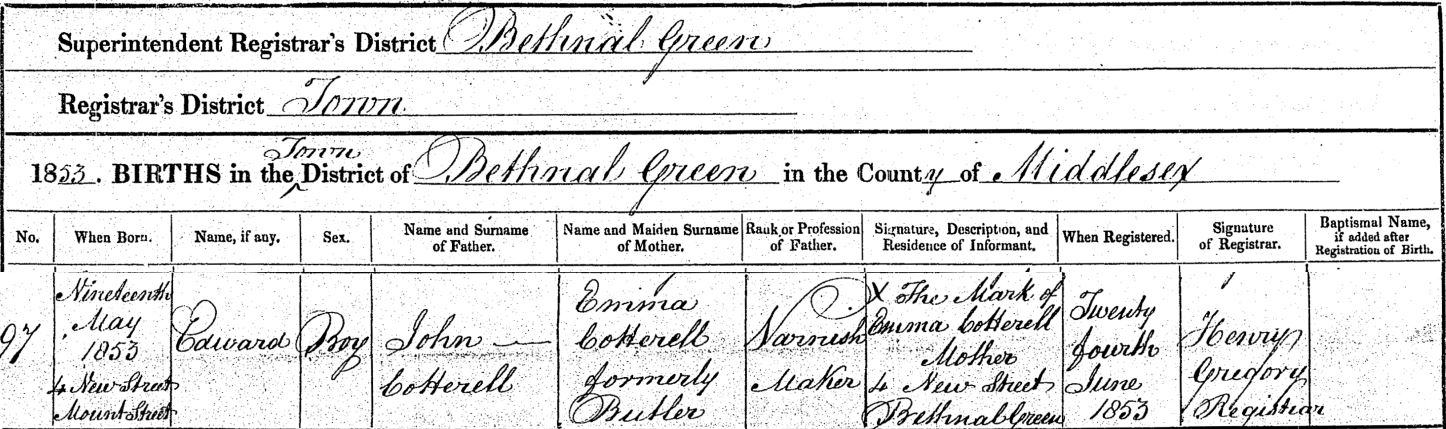 Superintendent Registrar's District Bethnal Green
Registrar's District Town
Town
1853. BIRTHS in the District of Bethnal Green in the County of Middlesex
No. When Born. Name, if any. Sex. Name and Surname of Father. Name and Maiden Surname of Mother. Rank or Profession of Father. Signature, Description, and Residence of Informant. When Registered. Signature of Registrar. Baptismal Name, if added after Registration of Birth.
97
Nineteenth
May
1853
4 New Street
Mount Street
Edward
Boy
John
Cotterell
Emma
Cotterell
formerly
Butler
Varnish
Maker
X The Mark of
Emma Cotterell
Mother
4 New Street
Bethnal Green
Twenty
fourth
June
1853
Henry
Gregory
Registrar